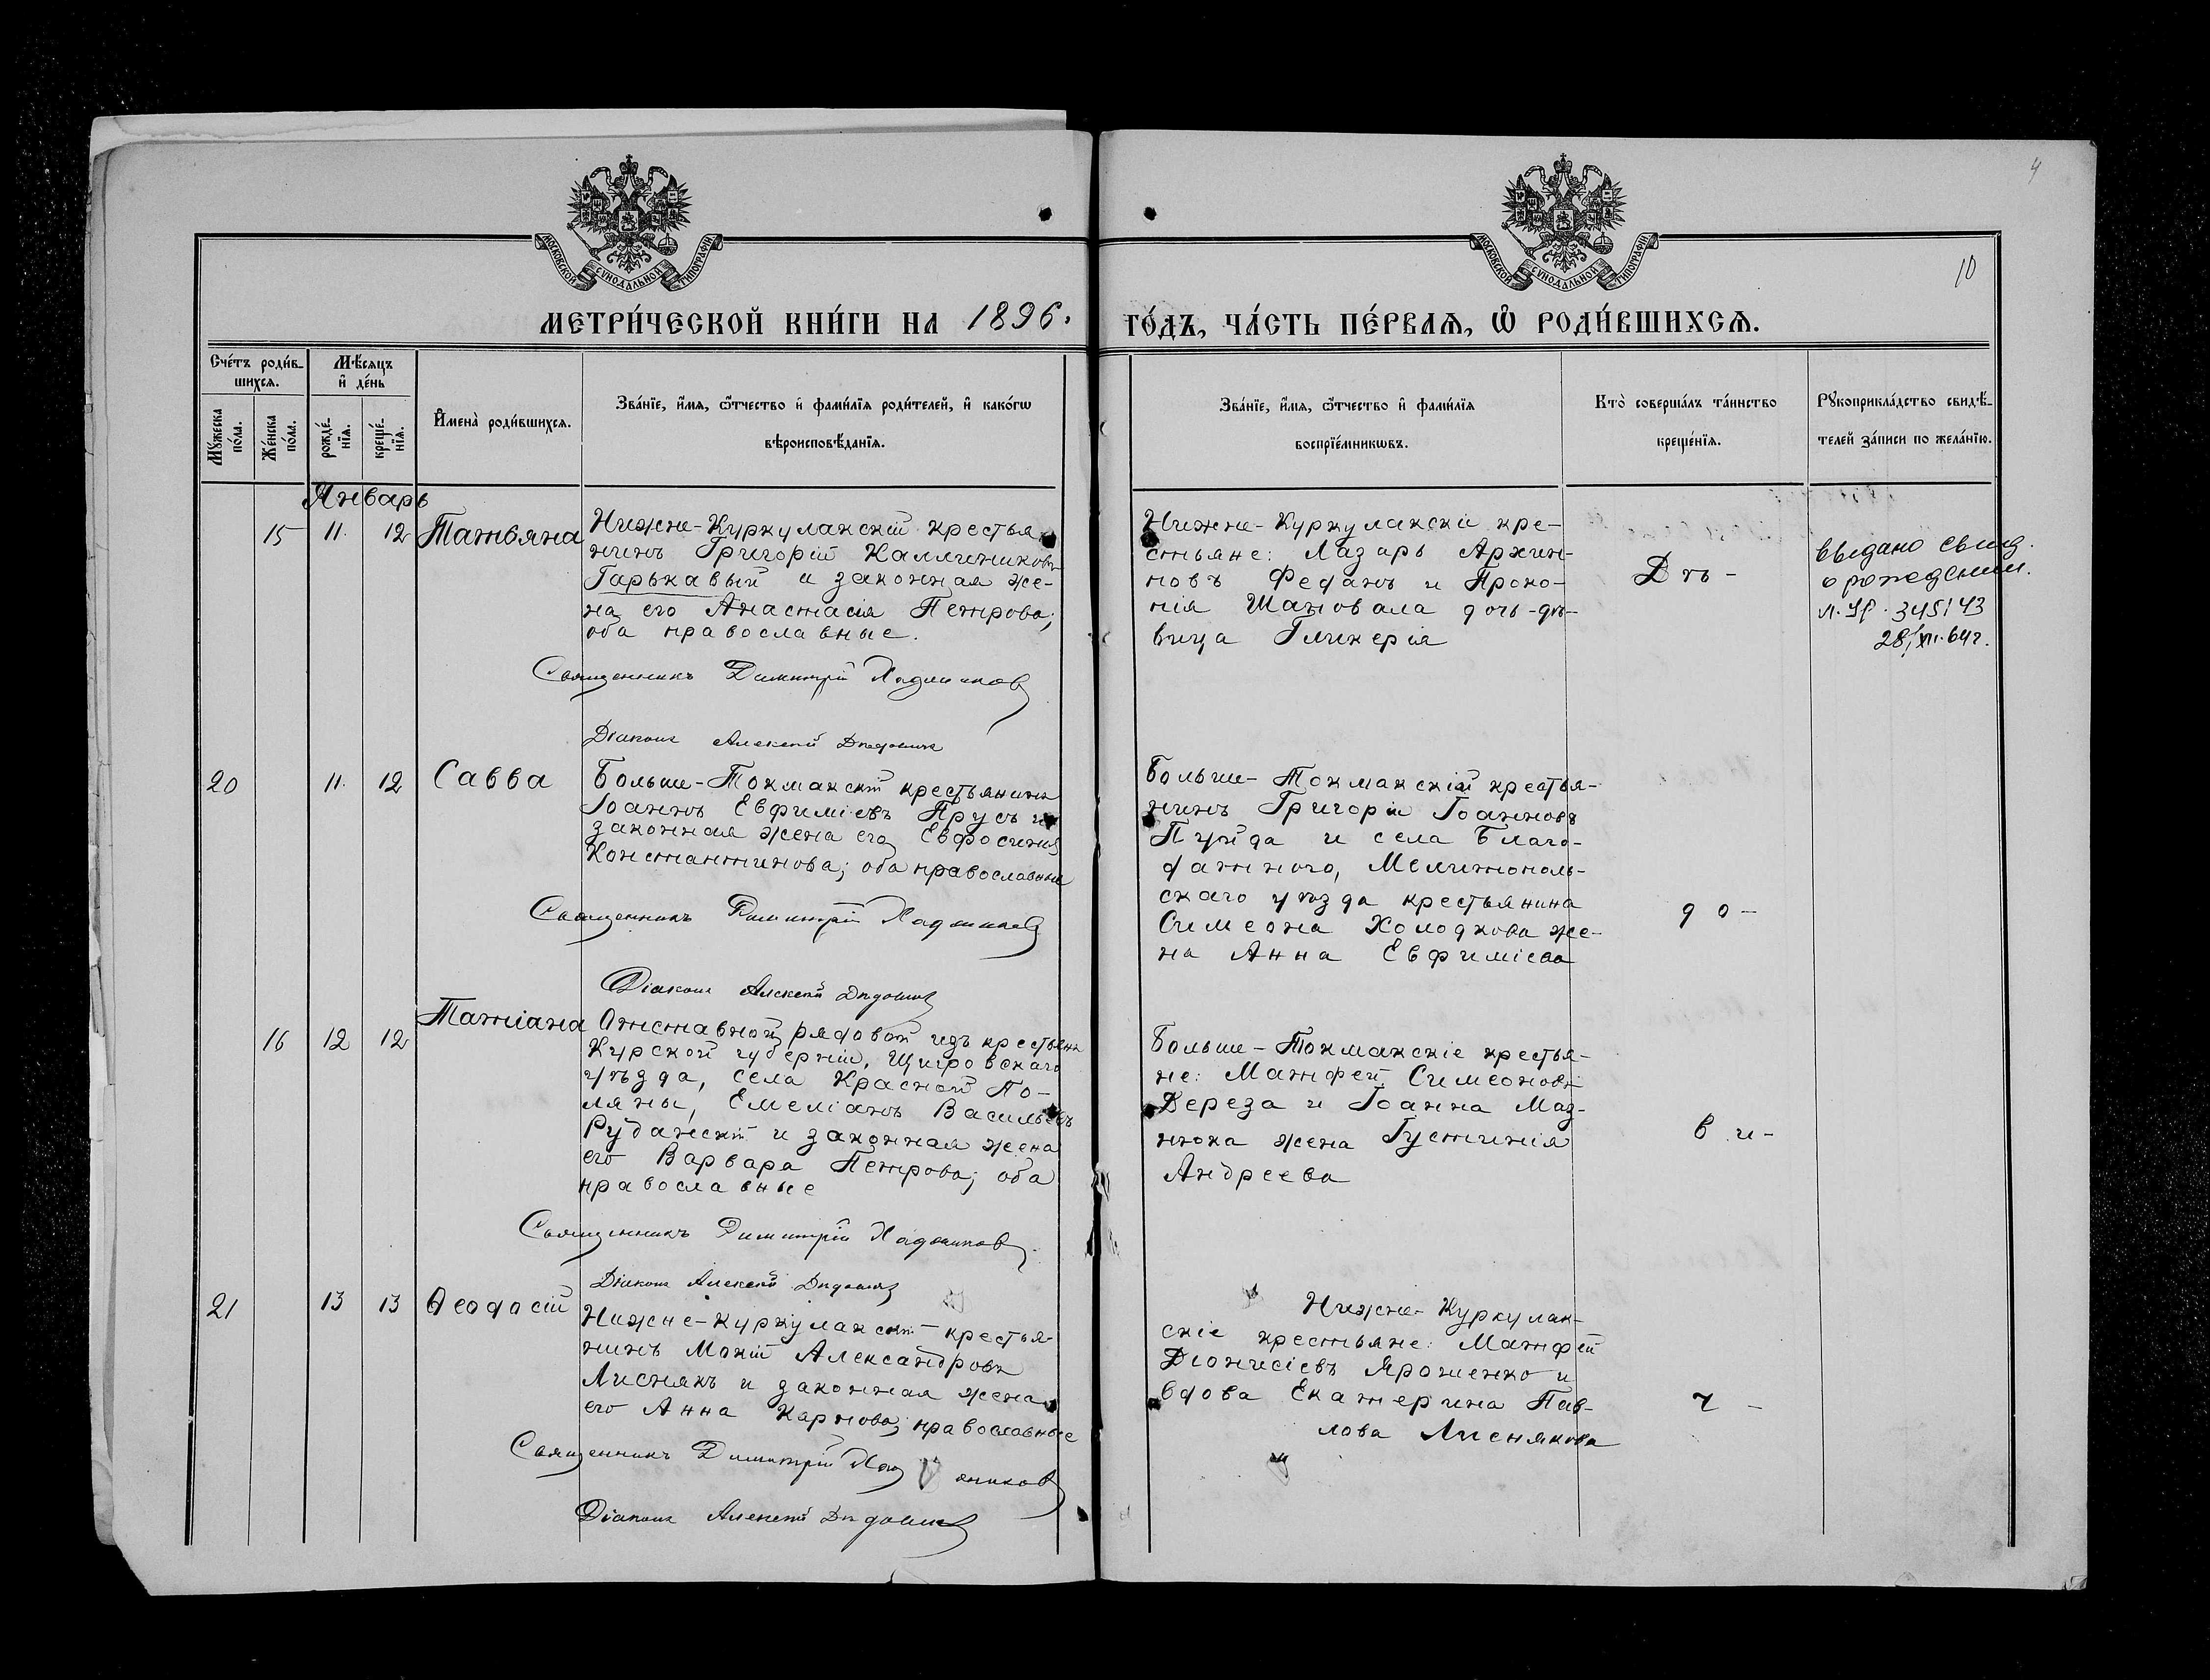 4
10
МОСКОВСКОЙ СѴНОДАЛЬНОЙ ТИПОГРАФІИ
МОСКОВСКОЙ СѴНОДАЛЬНОЙ ТИПОГРАФІИ
МЕТРИ́ЧЕСКОЙ КНИ́ГИ НА 1896.
ГО́ДЪ, ЧА́СТЬ ПЕ́РВАѦ, Ѿ РОДИ́ВШИХСѦ.
Сче́тъ роди́в-
шихсѧ.
Мѣ́сѧцъ
и҆ де́нь
Мꙋ́жеска
по́ла.
Же́нска
по́ла.
рожде́-
нїѧ.
креще́-
нїѧ.
И҆мена̀ роди́вшихсѧ.
Зва́нїе, и҆́мѧ, ѻ҆́тчество и҆ фами́лїѧ роди́телей, и҆ како́гѡ
вѣроисповѣ́данїѧ.
Зва́нїе, и҆́мѧ, ѻ҆́тчество и҆ фами́лїѧ
воспрїе́мникѡвъ.
Кто̀ соверша́лъ та́инство
креще́нїѧ.
Рꙋкоприкла́дство свидѣ́-
телей за́писи по жела́нїю.
Январь
15 11. 12 Татьяна
Нижне-Куркулакскій крестья-
нинъ Григорій Каллиниковъ
Гарькавый и законная же-
на его Анастасія Петрова;
оба православные.
Священникъ Димитрій
Діаконъ Алексій
Нижне-Куркулакскіе кре-
стьяне: Лазарь Архип-
новъ Феданъ и Проко-
пія Шаповала дочь-дѣ-
вица Гликерія
Дѣ-
выдано свид.
о рождении.
345143
28/XII.64г.
20 11. 12 Савва
Больше-Токмакскій крестьянинъ
Іоаннъ Евфиміевъ Прусъ и
законная жена его Евфросинія
Константинова; оба православные
Священникъ Димитрій
Діаконъ Алексій
Больше-Токмакскій крестья-
нинъ Григорій Іоанновъ
Пунда и села Благо-
датного, Мелитополь-
скаго уѣзда крестьянина
Симеона Холодкова же-
на Анна Евфиміева
до-
16 12 12 Татіана
Отставной рядовой изъ крестьянъ
Курской губерніи, Щигровскаго
уѣзда, села Красной По-
ляны, Емеліанъ Васильевъ
Рубанскій и законная жена
его Варвара Петрова; оба
православные
Священникъ Димитрій
Діаконъ Алексій
Больше-Токмакскіе крестья-
не: Матфей Симеоновъ
Дереза и Іоанна Маз-
нюка жена Густинія
Андреева
ви-
21 13 13 Ѳеодосій
Нижне-Куркулакскій крестья-
нинъ Мокій Александровъ
Лиснякъ и законная жена
его Анна Карпова; православные
Священникъ Димитрій
Діаконъ Алексій
Нижне-Куркулак-
скіе крестьяне: Матфей
Діонисіевъ Ярошенко и
вдова Екатерина Пав-
лова Лиснякова
ч-